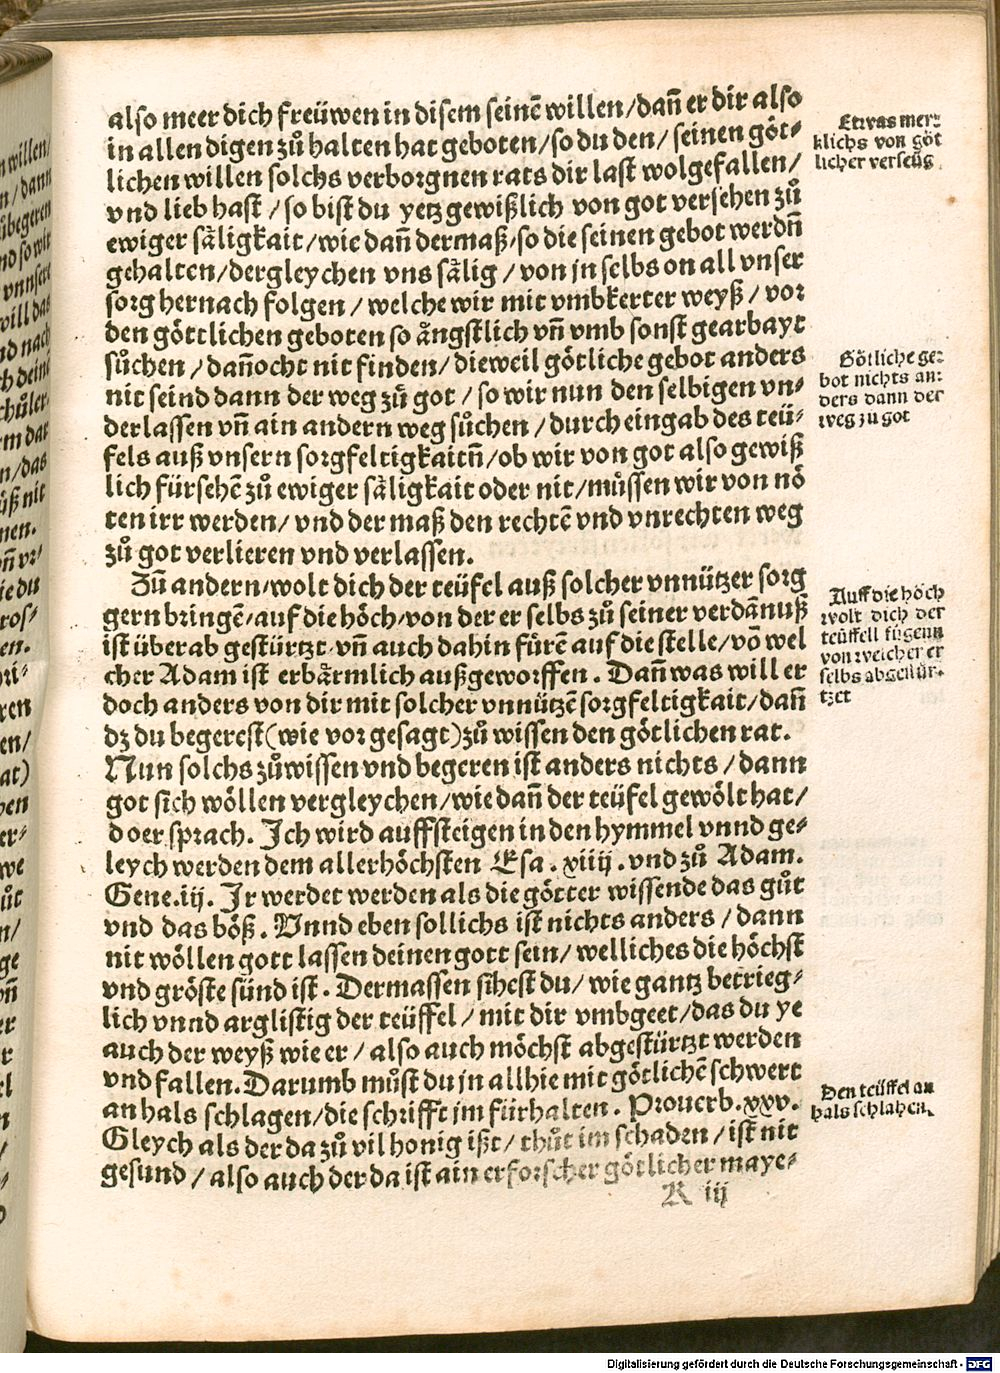 also meer dich freüwen in disem seinē willen/ dañ er dir also
in allen digen zů halten hat geboten/ so du den/ seinen göt-
lichen willen solchs verborgnen rats dir last wolgefallen/
vnd lieb hast/ so bist du yetz gewißlich von got versehen zů
ewiger säligkait/ wie dañ dermaß/ so die seinen gebot werdñ
gehalten/ dergleychen vns sälig/ von jn selbs on all vnser
sorg hernach folgen/ welche wir mit vmbkerter weyß/ vor
den göttlichen geboten so ängstlich vñ vmb sonst gearbayt
sůchen/ dañocht nit finden/ dieweil götliche gebot anders
nit seind dann der weg zů got/ so wir nun den selbigen vn-
derlassen vñ ain andern weg sůchen/ durch eingab des teü-
fels auß vnsern sorgfeltigkaitñ/ ob wir von got also gewiß
lich fürsehē zů ewiger säligkait oder nit/ müssen wir von nö
ten irr werden/ vnd der maß den rechtē vnd vnrechten weg
zů got verlieren vnd verlassen.
Zů andern/ wolt dich der teüfel auß solcher vnnützer sorg
gern bringē/ auf die höch/ von der er selbs zů seiner verdānuß
ist überab gestürtzt/ vñ auch dahin fürē auf die stelle/ vō wel
cher Adam ist erbärmlich außgeworffen. Dañ was will er
doch anders von dir mit solcher vnnützē sorgfeltigkait/ dañ
dz du begerest (wie vor gesagt) zů wissen den götlichen rat.
Nun solchs zůwissen vnd begeren ist anders nichts/ dann
got sich wöllen vergleychen/ wie dañ der teüfel gewölt hat/
do er sprach. Ich wird auffsteigen in den hymmel vnnd ge-
leych werden dem allerhöchsten Esa. xiiij. vnd zů Adam.
Gene. iij. Ir werdet werden als die götter wissende das gůt
vnd das böß. Vnnd eben sollichs ist nichts anders/ dann
nit wöllen gott lassen deinen gott sein/ welliches die höchst
vnd gröste sünd ist. Dermassen sihest du/ wie gantz betrieg-
lich vnnd arglistig der teüffel/ mit dir vmbgeet/ das du ye
auch der weyß wie er/ also auch möchst abgestürtzt werden
vnd fallen. Darumb můst du jn allhie mit götlichē schwert
an hals schlagen/ die schrifft jm fürhalten. Prouerb. xxv.
Gleych als der da zů vil honig ißt/ thůt im schaden/ ist nit
gesund/ also auch der da ist ain erforscher götlicher maye-
R iij
Etwas mer-
klichs von göt
licher versëüg
Götliche ge-
bot nichts an-
ders dann der
weg zu got
Auff die höch
wolt dich der
teüffell fügenn
von welcher er
selbs abgestür-
tzet
Den teüffel an
hals schlahen.
Digitalisierung gefördert durch die Deutsche Forschungsgemeinschaft - DFG